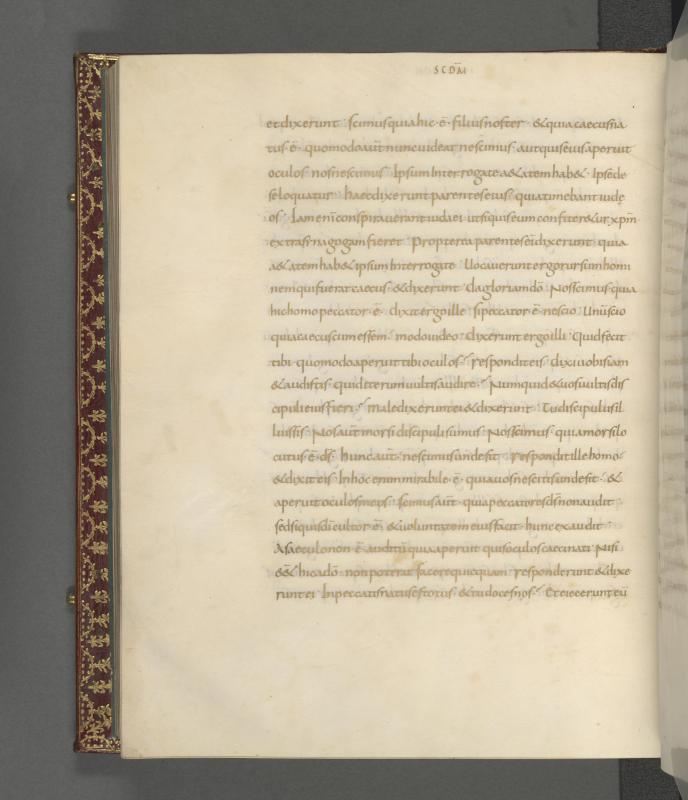 SCDM̄
et dixerunt · scimus quia hic · ē · filius noster · & quia caecus na
tus · ē · quomodo aut̄ nunc uideat nescimus · aut quis eius aperuit
oculos nos nescimus · Ipsum Interrogate a&atem hab& · Ipse de
se loquatur · haec dixerunt parentes eius · quia timebant iudę
os · Iam enī conspirauerant iudaei ut si quis eum confiter&ur xpm̄
extra synagogam fieret · Propterea parentes ei dixerunt · quia
a&atem hab& ipsum Interrogate · Uocauerunt ergo rursum homi
nem qui fuerat caecus · & dixerunt · da gloriam dō · Nos scimus quia
hic homo peccator · ē · dixit ergo ille · si peccator · ē · nescio · Unū scio
quia caecus cum essem · modo uideo · dixerunt ergo illi · Quid fecit
tibi · quomodo aperuit tibi oculos · respondit eis · dixi uobis iam
& audistis · quid iterum uultis audire · Numquid & uos uultis dis
cipuli eius fieri · maledixerunt ei & dixerunt · Tu discipulus il
lius sis · Nos aut̄ morsi discipuli sumus · Nos scimus · quia morsi lo
cutus · ē · ds̄ · hunc aut̄ · nescimus unde sit · respondit ille homo ·
& dixit eis · In hoc enim mirabile · ē · quia uos nescitis unde sit · &
aperuit oculos meos · scimus aut̄ · quia peccatores ds̄ non audit ·
sed si quis dī cultor · ē · & uoluntatem eius facit · hunc exaudit ·
A saeculo non · ē · auditū quia aperuit quis oculos caeci nati · Nisi
ess& hic a dō · non poterat facere quicquam · responderunt & dixe
runt ei · In peccatis natus es totus · & tu doces nos · Et eiecerunt eū